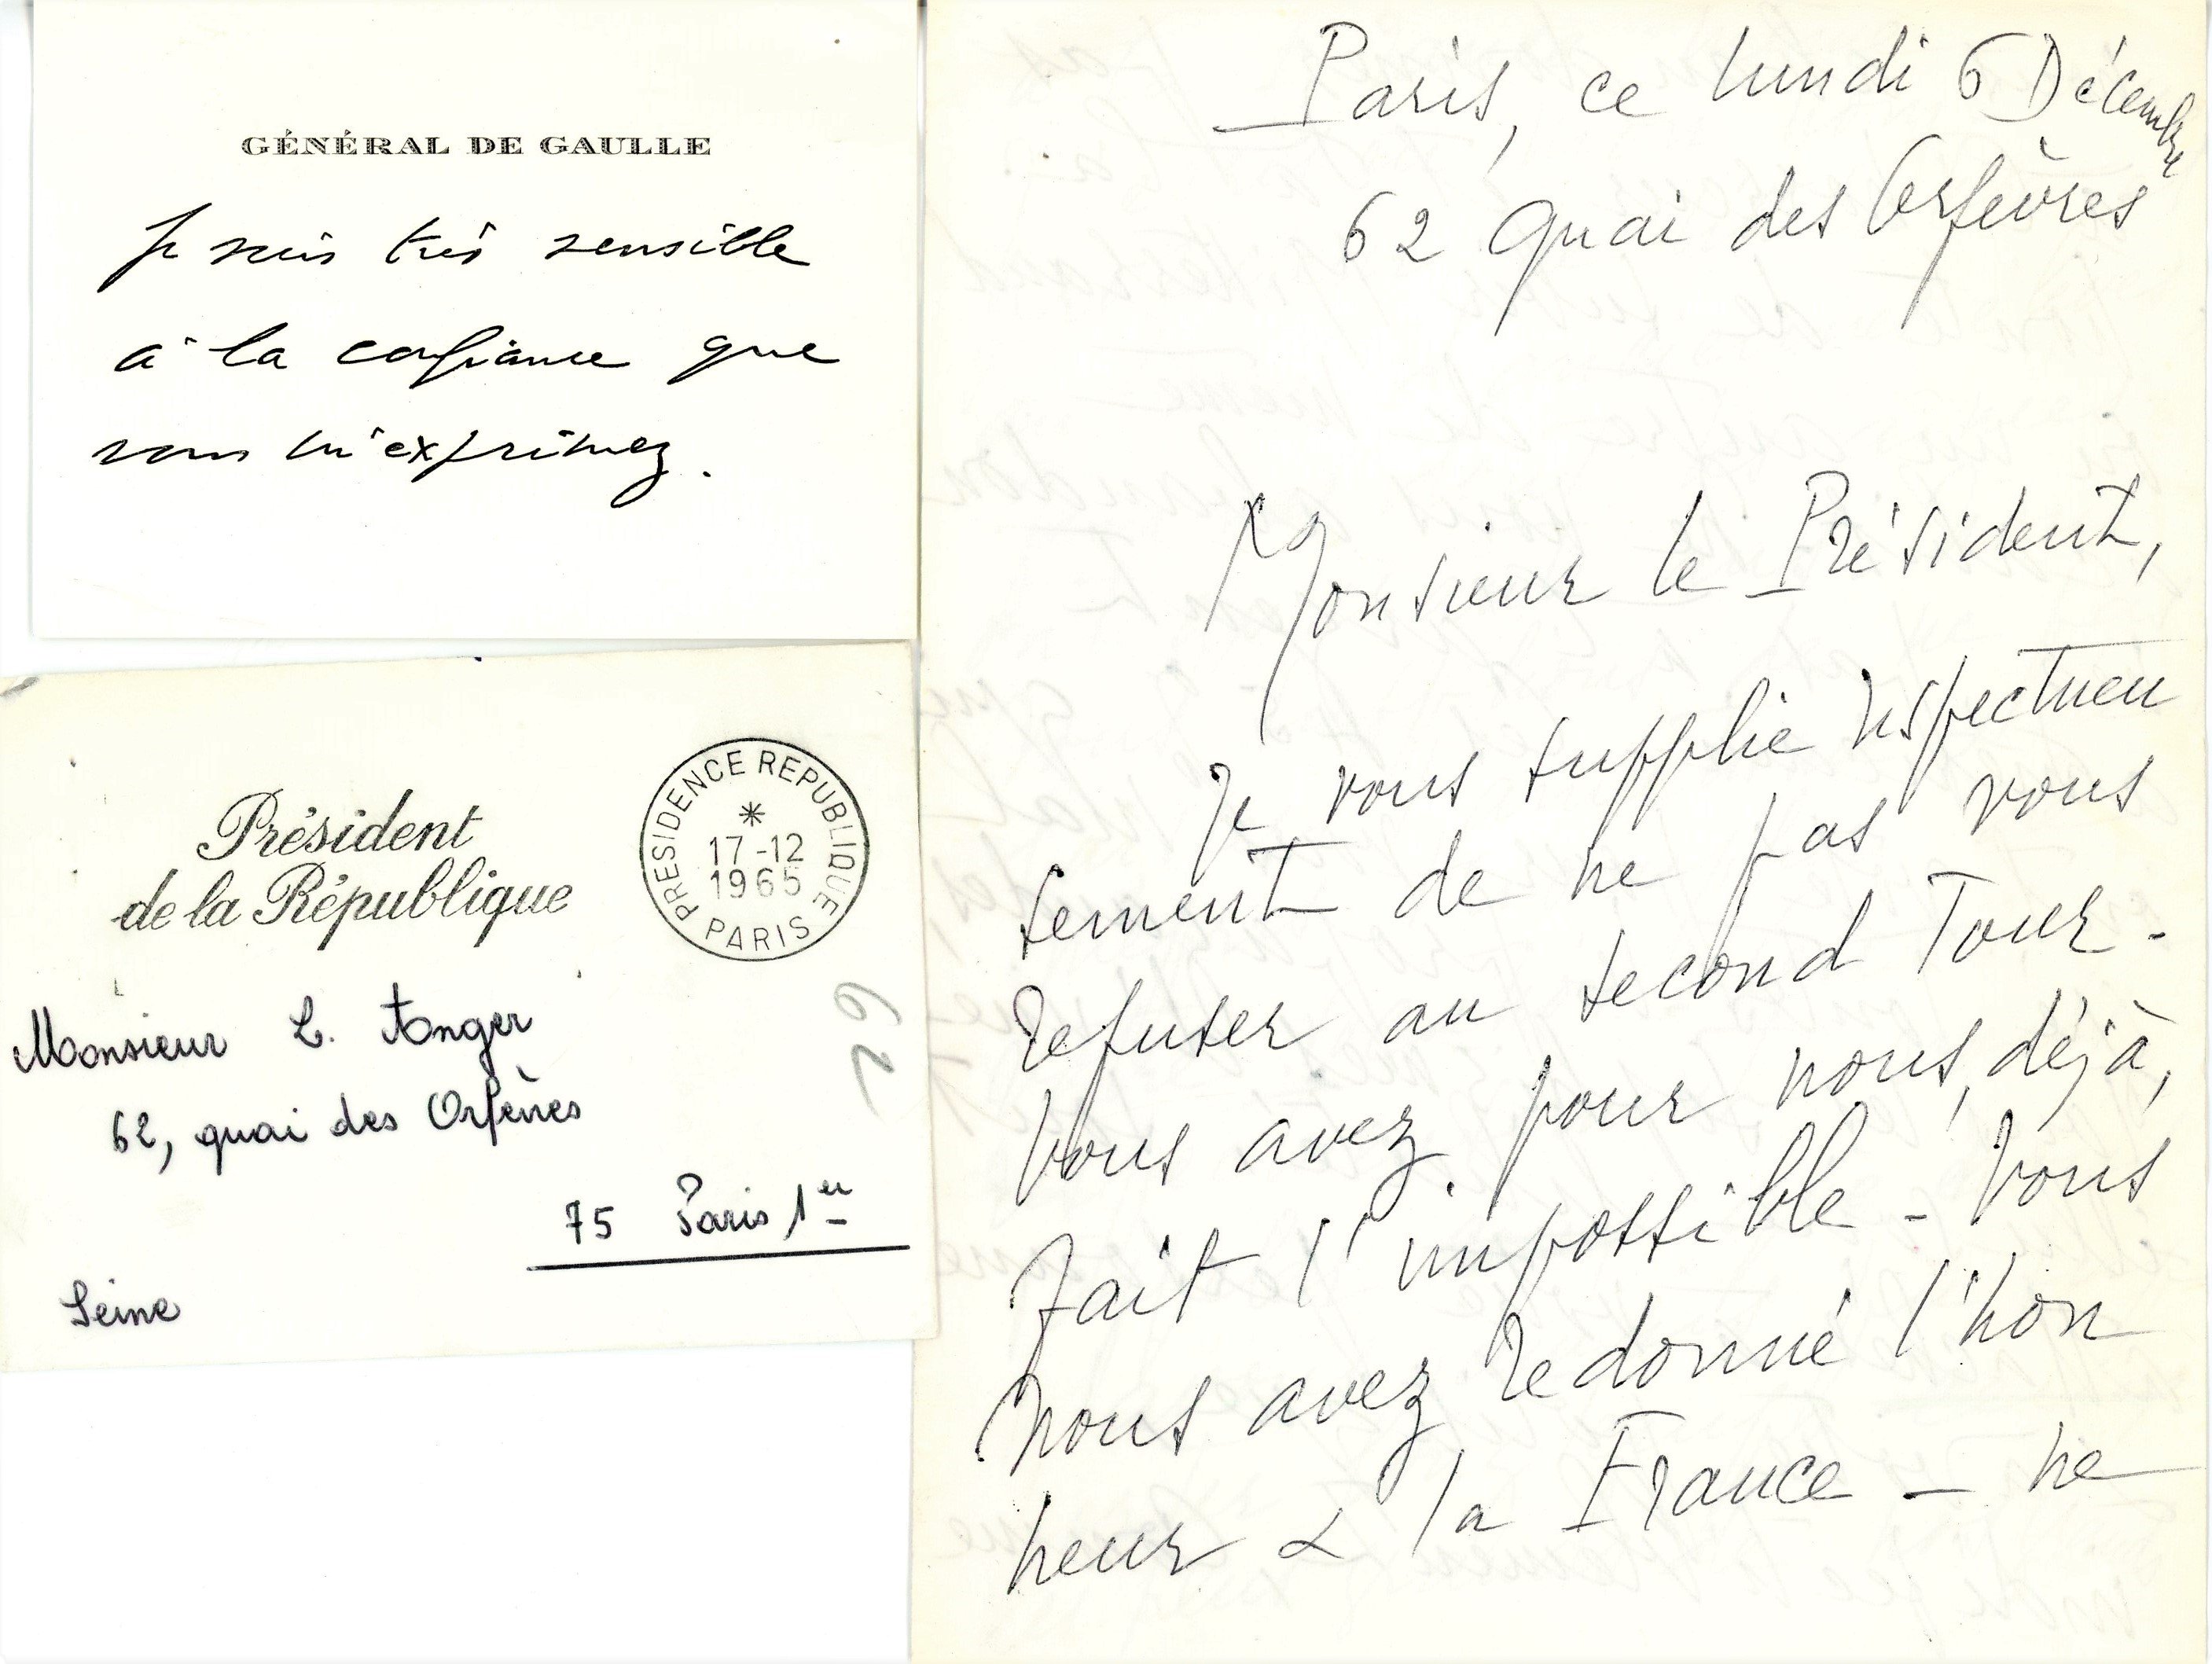 GÉNÉRAL DE GAULLE
Je suis très sensible
à la confiance que
vous m'exprimez.
Président
de la République
PRESIDENCE REPUBLIQUE
*
17-12
1965
PARIS
Monsieur L. Anger
62, quai des Orfèvres
75 Paris 1er
Seine
62
Paris, ce lundi 6 Décembre
62 Quai des Orfèvres
Monsieur le Président,
Je vous supplie respectueu
sement de ne pas vous
refuser au second Tour -
Vous avez pour nous, déjà,
fait l'impossible - Vous
nous avez redonné l'hon
neur & la France - ne